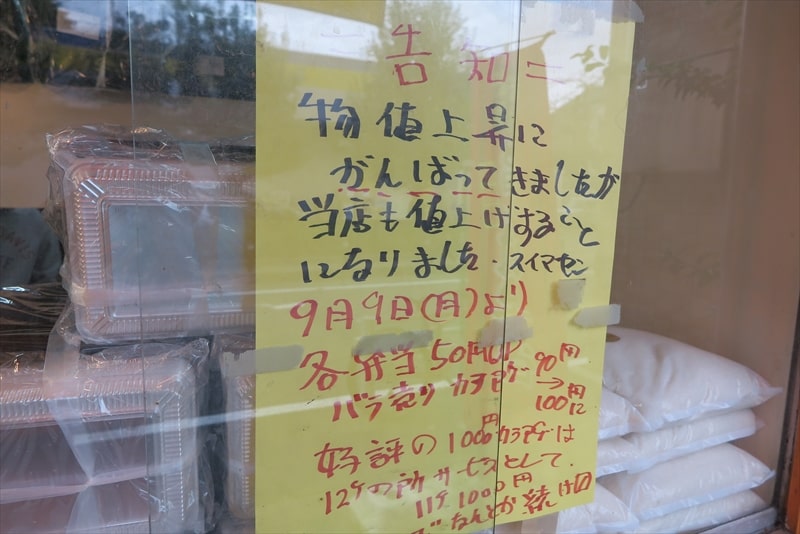 告知ニ
物値上昇に
がんばってきましたが
当店も値上げすること
になりました.スイマセン
9月9日(月)より
各弁当50円UP
バラ売りカラアゲ90円→100円に
好評の1000円カラアゲは
12ケの所サービスとして.
11ケ1000円
でなんとか続け